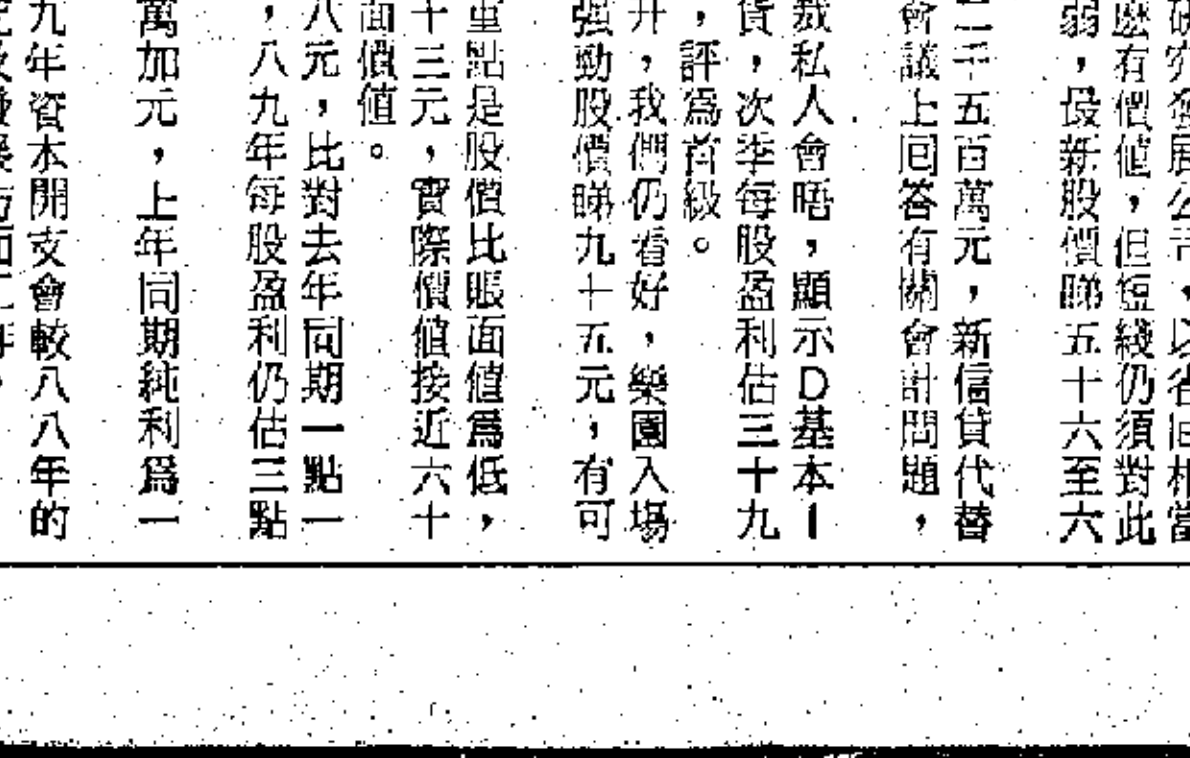 研究發展公司，以省油相當
麼有價值，但短綫仍須對此
弱，最新股價睇五十六至六
二千五百萬元，新信貸代替
會議上回答有關會計問題，
裁私人會晤，顯示D基本I
貨，次季每股盈利估三十九
，評爲首級。
升，我們仍看好，樂園入場
強勁股價睇九十五元，有可
重點是股價比賬面值爲低，
十三元，實際價值接近六十
面價值。
八元，比對去年同期一點一
，八九年每股盈利仍估三點
萬加元，上年同期純利爲一
九年資本開支會較八八年的